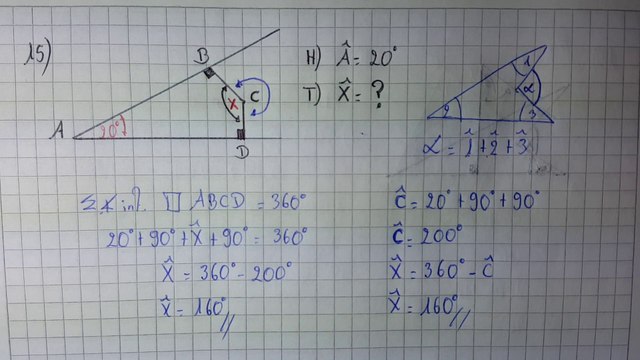 15)
A
B
C
D
20°
X
H) Â = 20°
T) X̂ = ?
1
2
3
α
α = 1̂ + 2̂ + 3̂
Σ∡ int. ▯ ABCD = 360°
20° + 90° + X̂ + 90° = 360°
X̂ = 360° - 200°
X̂ = 160° //
Ĉ = 20° + 90° + 90°
Ĉ = 200°
X̂ = 360° - Ĉ
X̂ = 160° //